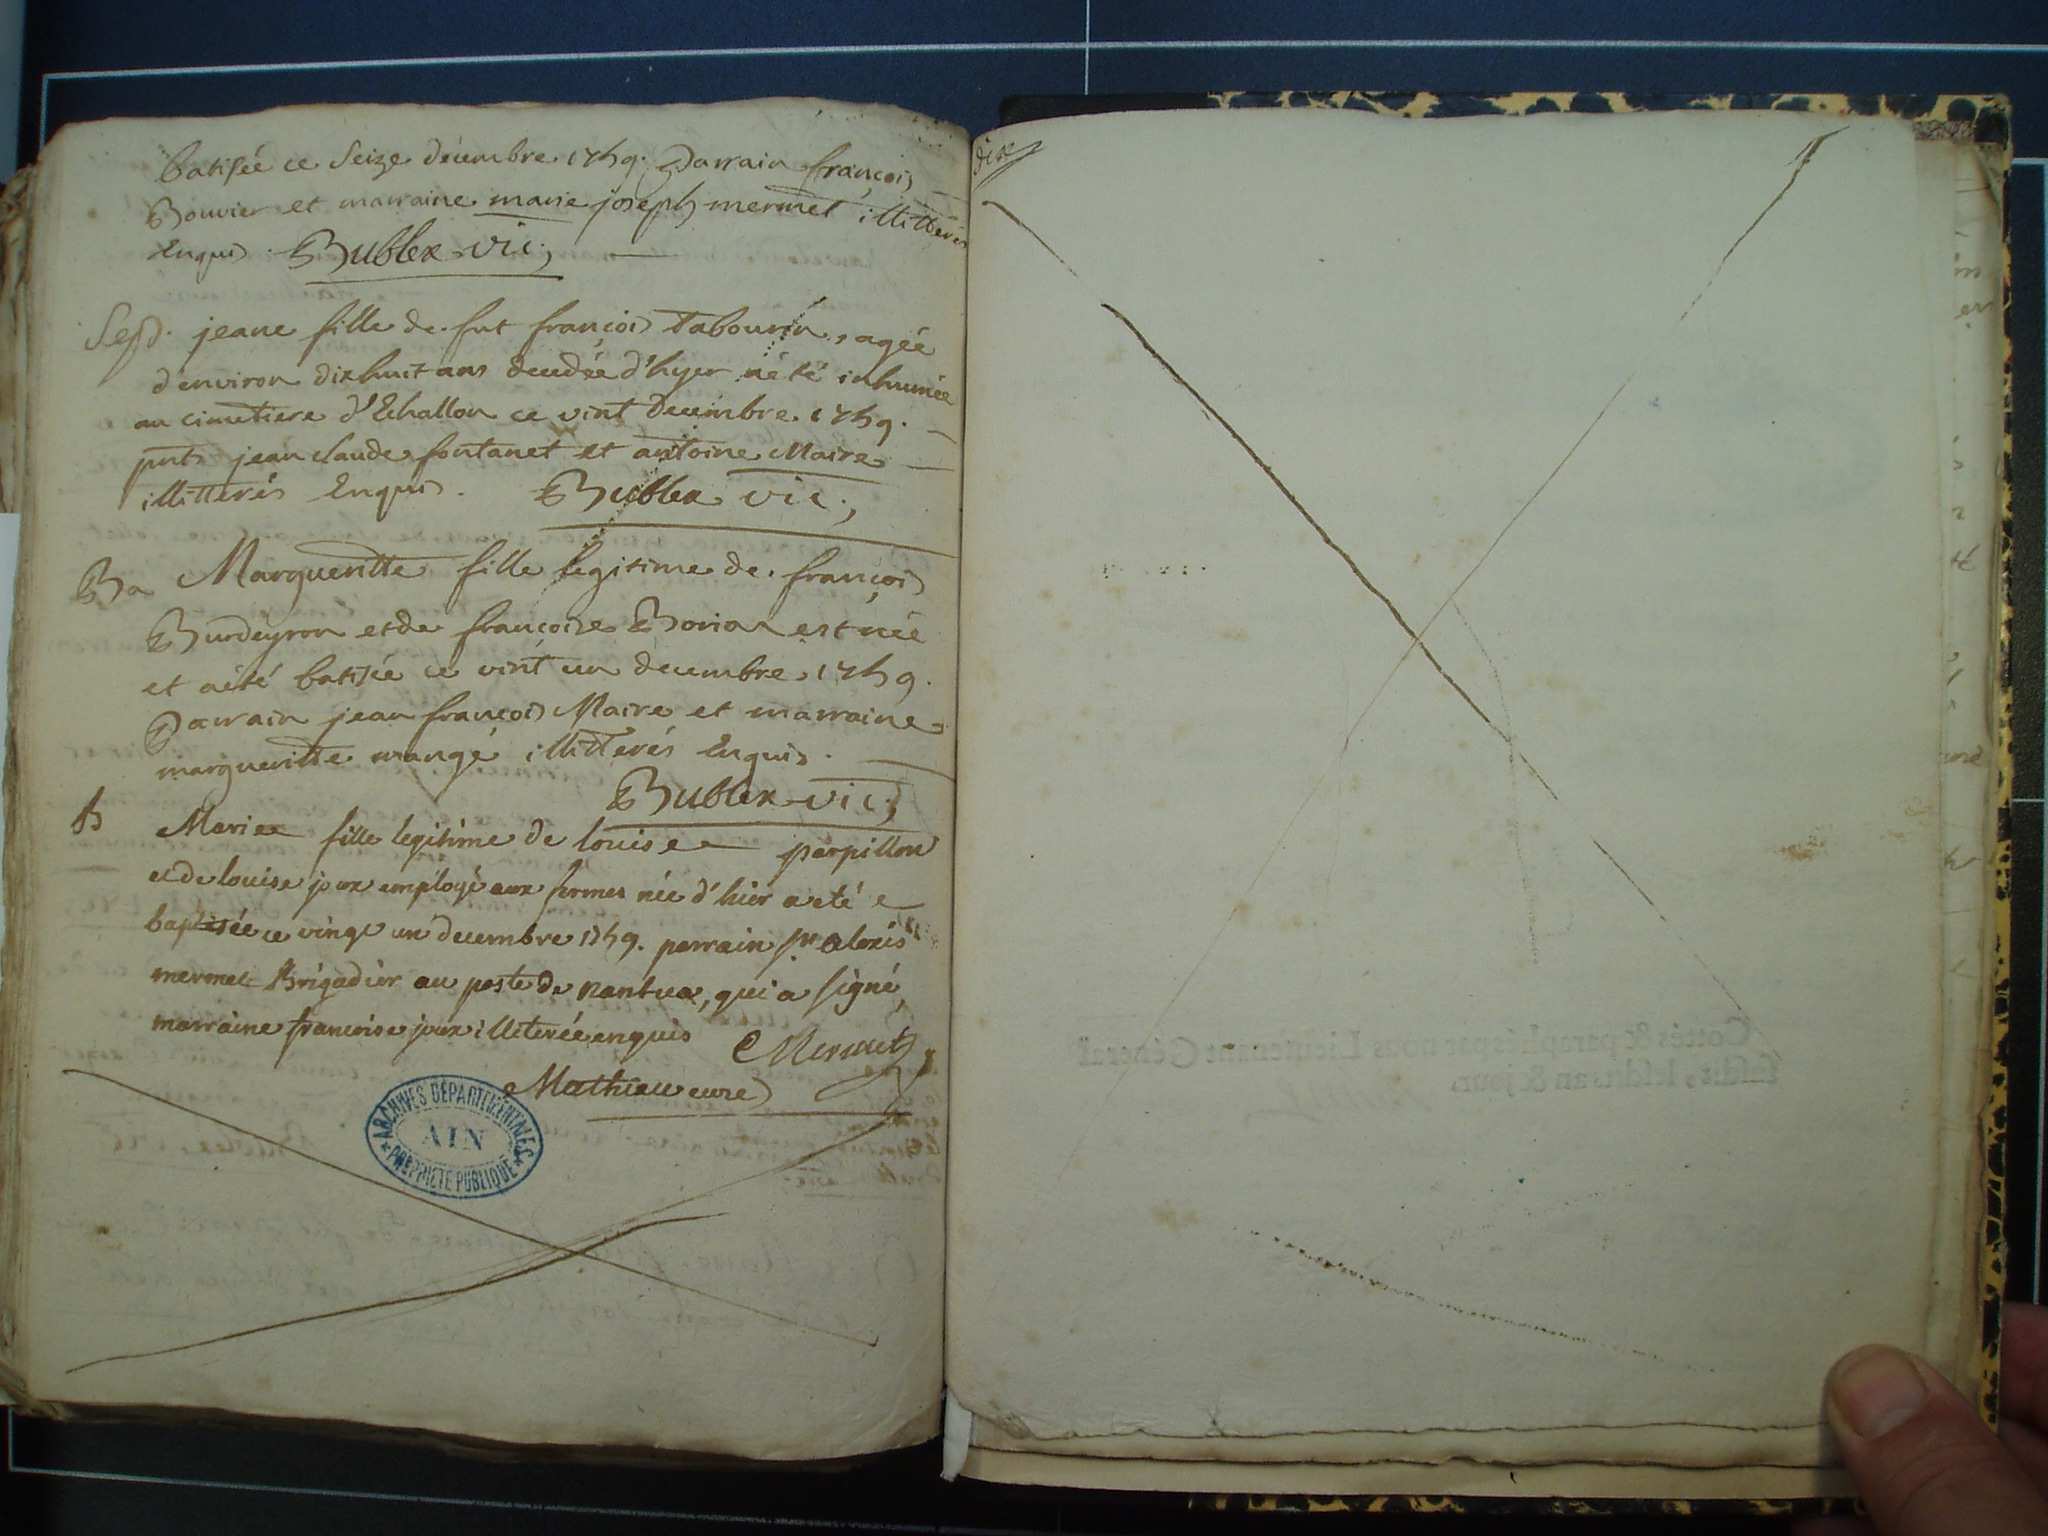 batisée ce Seize décembre 1759. Parrain françois
Bouvier et marraine marie joseph mermet illitterés
Enquis. Bublex vic;
Sep. jeane fille de fut françois Tabourin, agée
d'environ dix huit ans decedée d'hyer a été inhumée
au cimetiere d'Echallon ce vint decembre 1759.
pnts jean claude fontanet et antoine Maire
illitterés Enquis. Bublex vic;
Ba Margueritte fille legitime de françois
Burdeyron et de françoise Borion est née
et a été batisée ce vint un decembre 1759.
Parrain jean françois Maire et marraine
margueritte mangé illitterés Enquis.
Bublex vic;
B Marie fille legitime de louis parpillon
et de louise joux employé aux fermes née d'hier a eté
baptisée ce vingt un decembre 1759. parrain sr. alexis
mermet Brigadier au poste de nantua, qui a signé,
marraine francoise joux illiterée enquis Mermet
Mathieu curé
ARCHIVES DÉPARTEMENTALES
AIN
PROPRIÉTÉ PUBLIQUE
dix
Cottés & paraphés par nous Lieutenant Général
susdit, lesdits an & jour.